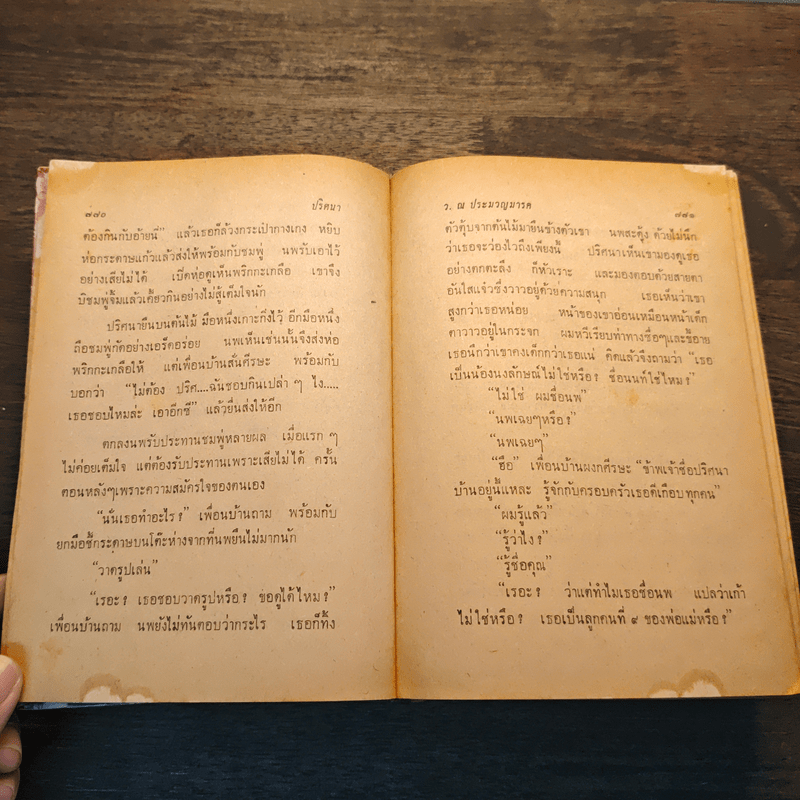 ๗๗๐ ปริศนา
ต้องกินกับอ้ายนี่” แล้วเธอก็ล้วงกระเป๋ากางเกง หยิบ
ห่อกระดาษแก้วแล้วส่งให้พร้อมกับชมพู่ นพรับเอาไว้
อย่างเสียไม่ได้ เปิดห่อดูเห็นพริกกะเกลือ เขาจึง
บิชมพู่จิ้มแล้วเคี้ยวกินอย่างไม่สู้เต็มใจนัก
ปริศนายืนบนต้นไม้ มือหนึ่งเกาะกิ่งไว้ อีกมือหนึ่ง
ถือชมพู่กัดอย่างเอร็ดอร่อย นพเห็นเช่นนั้นจึงส่งห่อ
พริกกะเกลือให้ แต่เพื่อนบ้านสั่นศีรษะ พร้อมกับ
บอกว่า “ไม่ต้อง ปริศ....ฉันชอบกินเปล่า ๆ ไง.....
เธอชอบไหมล่ะ เอาอีกซี” แล้วยื่นส่งให้อีก
ตกลงนพรับประทานชมพู่หลายผล เมื่อแรก ๆ
ไม่ค่อยเต็มใจ แต่ต้องรับประทานเพราะเสียไม่ได้ ครั้น
ตอนหลังๆเพราะความสมัครใจของตนเอง
“นั่นเธอทำอะไร?” เพื่อนบ้านถาม พร้อมกับ
ยกมือชี้กระดาษบนโต๊ะห่างจากที่นพยืนไม่มากนัก
“วาดรูปเล่น”
“เรอะ? เธอชอบวาดรูปหรือ? ขอดูได้ไหม?”
เพื่อนบ้านถาม นพยังไม่ทันตอบว่ากระไร เธอก็ทิ้ง
ว. ณ ประมวญมารค ๗๗๑
ตัวตุ้บจากต้นไม้มายืนข้างตัวเขา นพสะดุ้ง ด้วยไม่นึก
ว่าเธอจะว่องไวถึงเพียงนี้ ปริศนาเห็นเขามองดูเธอ
อย่างตกตะลึง ก็หัวเราะ และมองตอบด้วยสายตา
อันใสแจ๋วซึ่งวาวอยู่ด้วยความสนุก เธอเห็นว่าเขา
สูงกว่าเธอหน่อย หน้าของเขาอ่อนเหมือนหน้าเด็ก
ตาวาวอยู่ในกระจก ผมหวีเรียบท่าทางซื่อๆและขี้อาย
เธอนึกว่าเขาคงเด็กกว่าเธอแน่ คิดแล้วจึงถามว่า “เธอ
เป็นน้องนงลักษณ์ไม่ใช่หรือ? ชื่อนนท์ใช่ไหม?”
“ไม่ใช่ ผมชื่อนพ”
“นพเฉยๆหรือ?”
“นพเฉยๆ”
“ฮือ” เพื่อนบ้านผงกศีรษะ “ข้าพเจ้าชื่อปริศนา
บ้านอยู่นี่แหละ รู้จักกับครอบครัวเธอดีเกือบทุกคน”
“ผมรู้แล้ว”
“รู้ว่าไง?”
“รู้ชื่อคุณ”
“เรอะ? ว่าแต่ทำไมเธอชื่อนพ แปลว่าเก้า
ไม่ใช่หรือ? เธอเป็นลูกคนที่ ๙ ของพ่อแม่หรือ?”